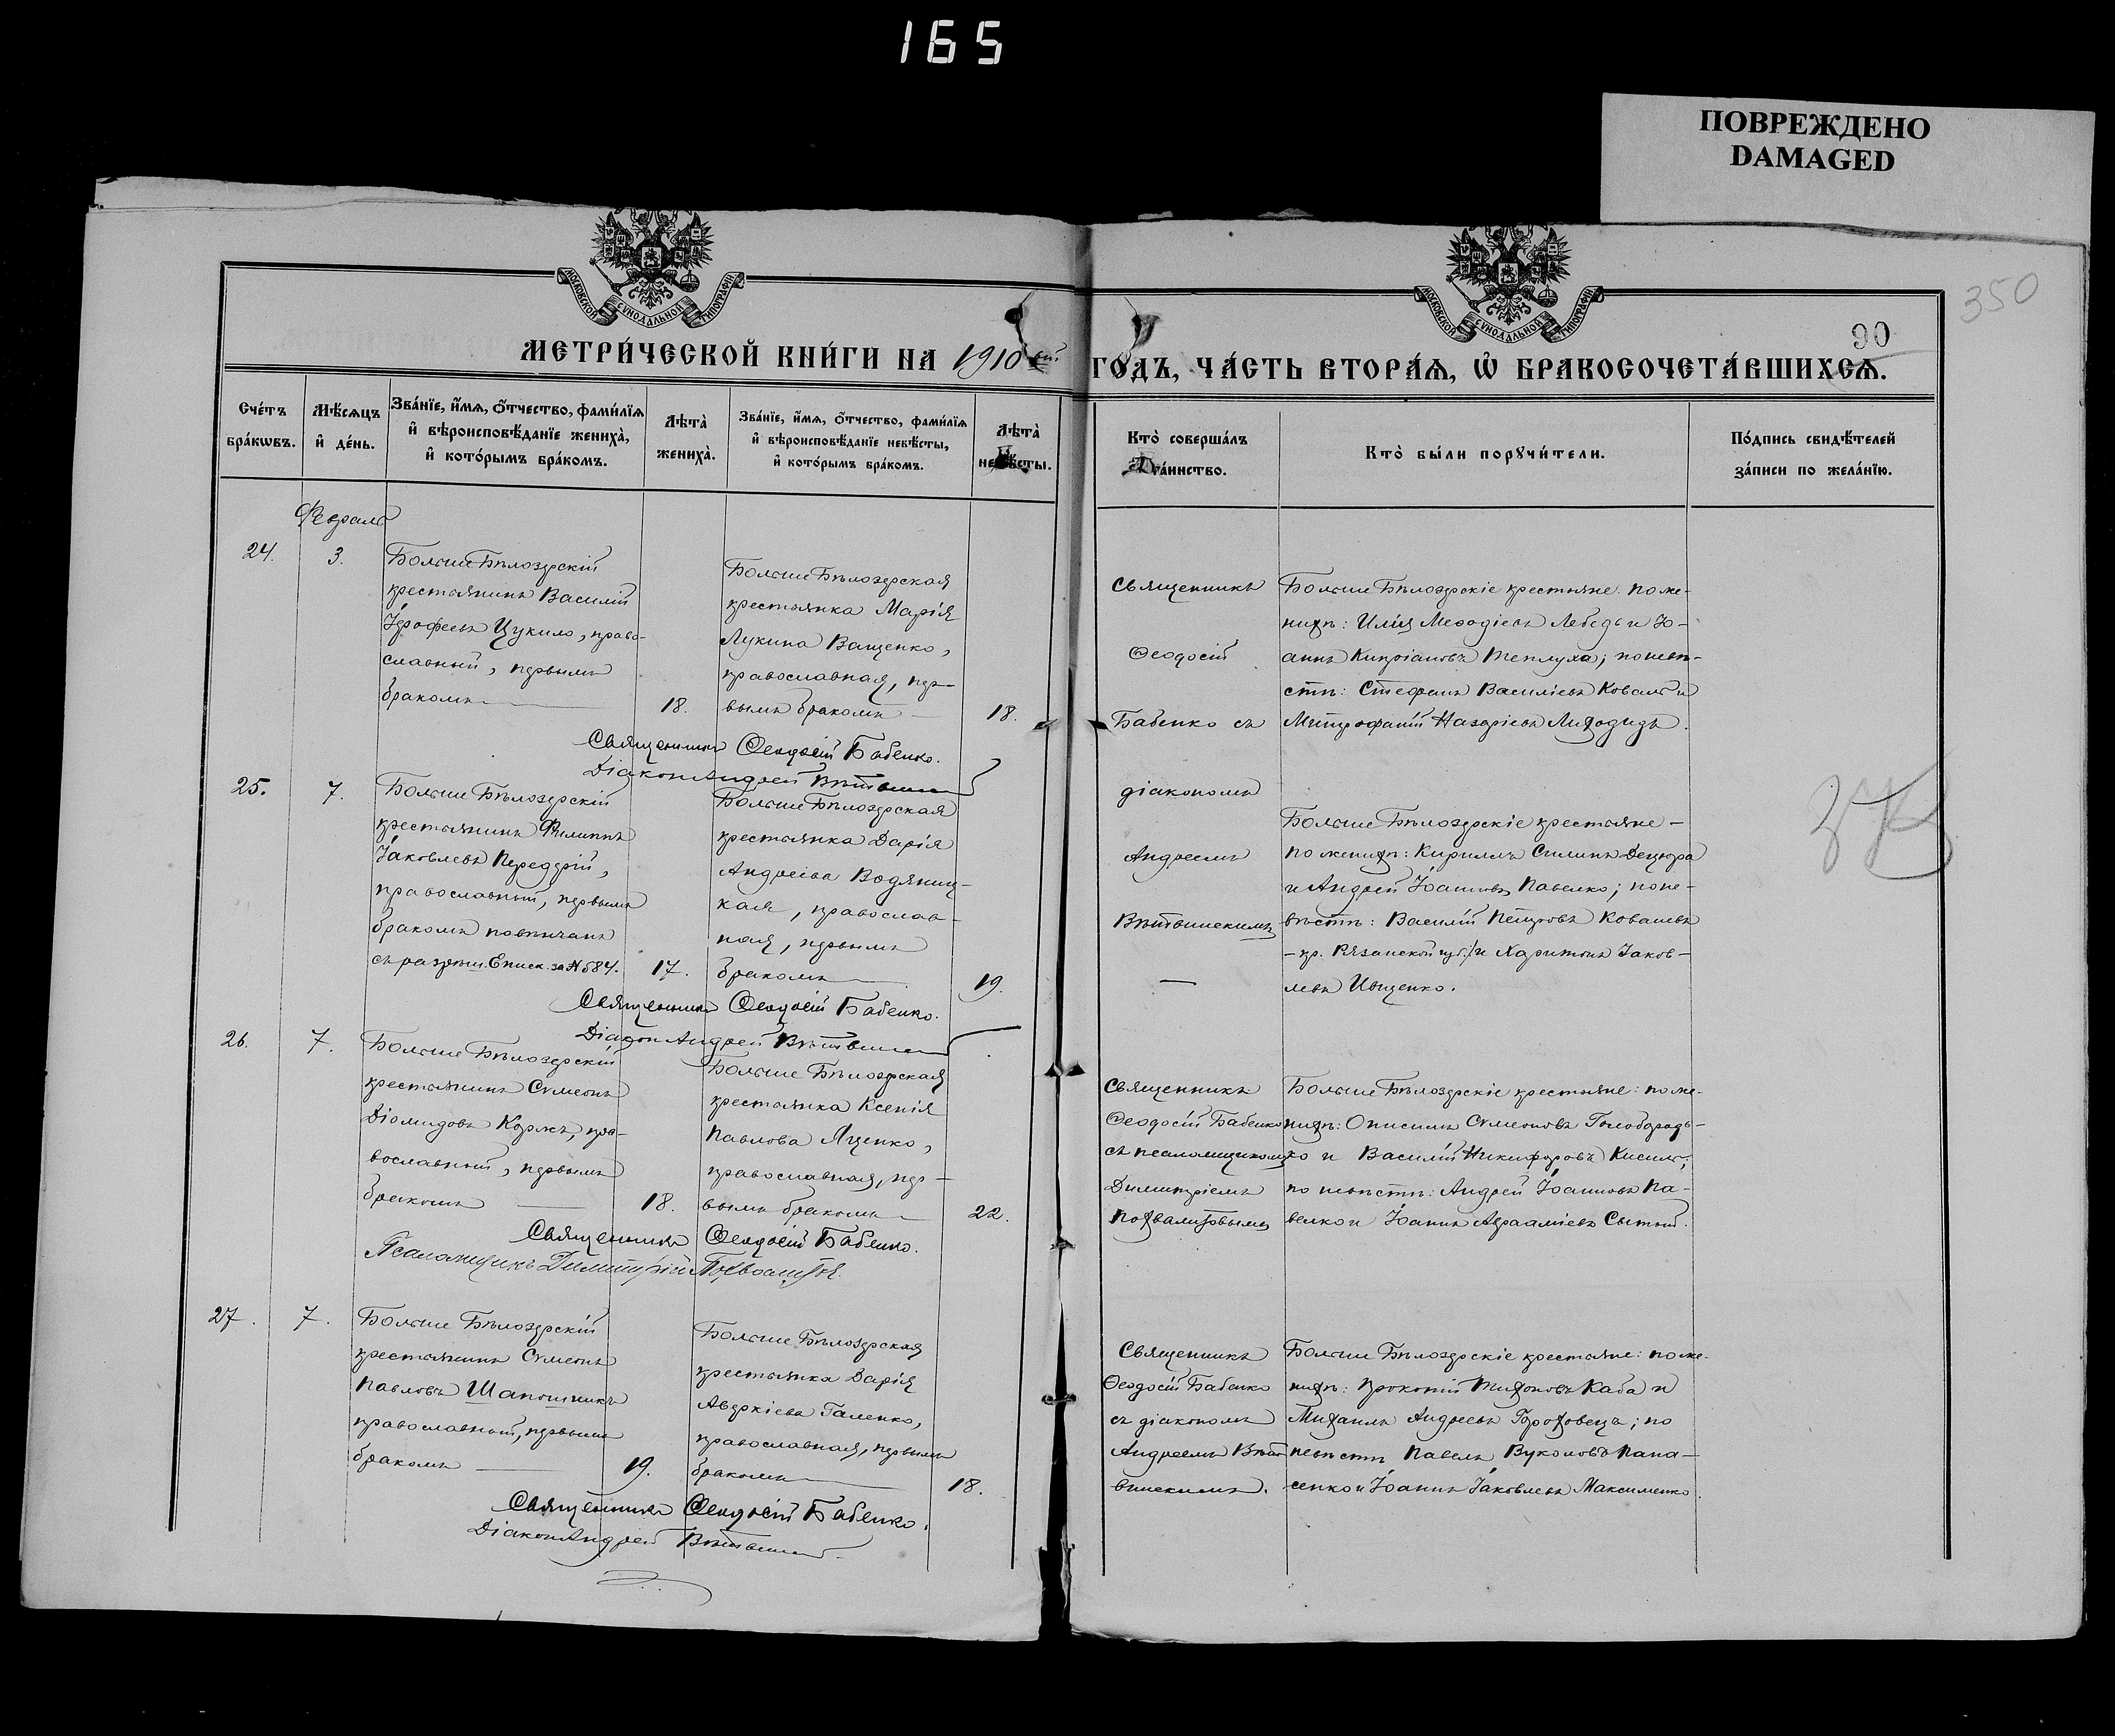 165
ПОВРЕЖДЕНО
DAMAGED
350
90
МОСКОВСКОЙ СѴНОДАЛЬНОЙ ТИПОГРАФІИ
МОСКОВСКОЙ СѴНОДАЛЬНОЙ ТИПОГРАФІИ
МЕТРИ́ЧЕСКОЙ КНИ́ГИ НА 1910 ый ГОДЪ, ЧА́СТЬ ВТОРА́Я, Ѡ БРАКОСОЧЕТА́ВШИХСѦ.
Сче́тъ
бра́кѡвъ.
Мѣ́сѧцъ
и҆ де́нь.
Зва́нїе, и҆́мѧ, ѻ҆́тчество, фами́лїѧ
и҆ вѣроисповѣ́данїе жениха̀,
и҆ кото́рымъ бра́комъ.
Лѣта̀
жениха̀.
Зва́нїе, и҆́мѧ, ѻ҆́тчество, фами́лїѧ
и҆ вѣроисповѣ́данїе невѣ́сты,
и҆ кото́рымъ бра́комъ.
Лѣта̀
невѣ́сты.
Кто̀ соверша́лъ
Та́инство.
Кто̀ бы́ли порꙋчи́тели.
По́дпись свидѣ́телей
за́писи по жела́нїю.
Февраль
24.
3.
Больше Бѣлозерскій
крестьянинъ Василій
Іерофеевъ Цукило, право-
славный, первымъ
бракомъ
18.
Больше Бѣлозерская
крестьянка Марія
Лукина Ващенко,
православная, пер-
вымъ бракомъ
18.
Священникъ
Ѳеодосій
Бабенко съ
діакономъ
Андреемъ
Вѣтвинскимъ
Больше Бѣлозерскіе крестьяне. по же-
нихѣ: Илія Меѳодіевъ Лебедь и Іо-
аннъ Кипріановъ Теплуха; по невѣ-
стѣ: Стефанъ Василіевъ Коваль и
Митрофанъ Назаріевъ Лиходидъ.
Священникъ Ѳеодосій Бабенко.
Діаконъ Андрей Вѣтвинскій
25.
7.
Больше Бѣлозерскій
крестьянинъ Филиппъ
Іаковлевъ Передерій,
православный, первымъ
бракомъ повѣнчанъ
съ разрѣш. Еписк. за № 584.
17.
Больше Бѣлозерская
крестьянка Дарія
Андреева Водяниц-
кая, православ-
ная, первымъ
бракомъ
19.
Больше Бѣлозерскіе крестьяне-
по женихѣ: Кириллъ Силинъ Децюра
и Андрей Іоанновъ Павелко; по не-
вѣстѣ: Василій Петровъ Ковалевъ
-кр. Рязанской губ./ и Харитонъ Іаков-
левъ Ищенко.
Священникъ Ѳеодосій Бабенко.
Діаконъ Андрей Вѣтвинскій
26.
7.
Больше Бѣлозерскій
крестьянинъ Сѵмеонъ
Діомидовъ Коржъ, пра-
вославный, первымъ
бракомъ
18.
Больше Бѣлозерская
крестьянка Ксенія
Павлова Яценко,
православная, пер-
вымъ бракомъ
22.
Священникъ
Ѳеодосій Бабенко
съ псаломщикомъ
Димитріемъ
Похвалитовымъ
Больше Бѣлозерскіе крестьяне: по же-
нихѣ: Онисимъ Сѵмеоновъ Голобородь-
ко и Василій Никифоровъ Кисиль;
по невѣстѣ: Андрей Іоанновъ Па-
велко и Іоаннъ Авраамiевъ Сытый.
Священникъ Ѳеодосій Бабенко.
Псаломщикъ Димитрій Похвалитовъ.
27.
7.
Больше Бѣлозерскій
крестьянинъ Сѵмеонъ
Павловъ Шапошникъ
православный, первымъ
бракомъ
19.
Больше Бѣлозерская
крестьянка Дарія
Аверкіева Галенко,
православная, первымъ
бракомъ
18.
Священникъ
Ѳеодосій Бабенко
съ діакономъ
Андреемъ Вѣт-
винскимъ.
Больше Бѣлозерскіе крестьяне: по же-
нихѣ: Прокопій Тихоновъ Каба и
Михаилъ Андреевъ Гороховецъ; по
невѣстѣ Павелъ Вуколовъ Пана-
сенко и Іоаннъ Іаковлевъ Максименко.
Священникъ Ѳеодосій Бабенко.
Діаконъ Андрей Вѣтвинскій.